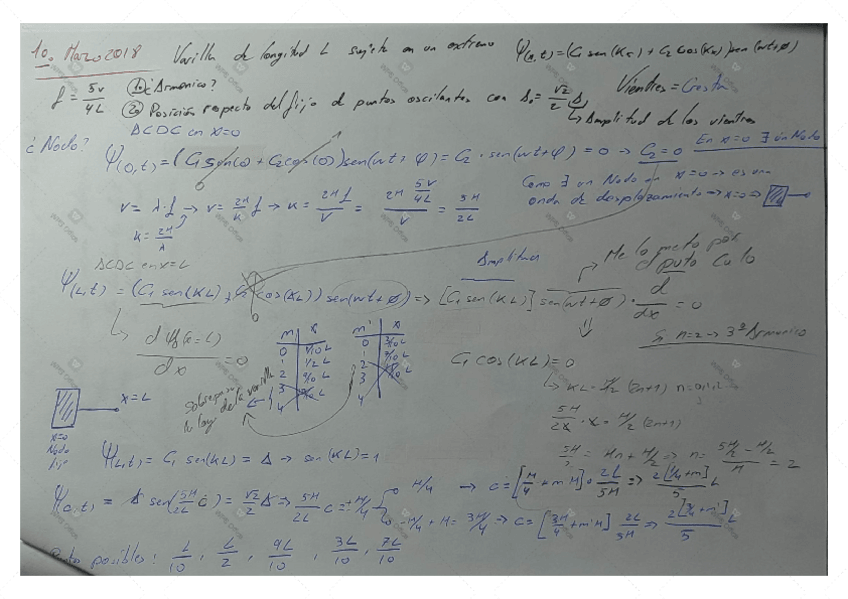 10. Marzo 2018 Varilla de longitud L sujeta en un extremo Ψ(x,t) = (C1 sen(Kx) + C2 cos(Kx)) sen(wt+ϕ)
f = 5v/4L 1º ¿Armonico? Vientres = Cresta
2º Posición respecto del fijo de puntos oscilantes con A0 = √2/2 A
↳ Amplitud de los vientres
¿Nodo? ACDC en x=0
Ψ(0,t) = (C1 sen(0) + C2 cos(0)) sen(wt+φ) = C2 · sen(wt+φ) = 0 → C2 = 0 En x=0 ∃ un Nodo
Como ∃ un Nodo en x=0 → es una
onda de desplazamiento → x=0 →
v = λ·f → v = 2π/K f → K = 2πf/v = 2π 5v/4L / v = 5π/2L
K = 2π/λ
ACDC en x=L Amplitud Me lo meto por
el puto culo
Ψ(L,t) = (C1 sen(KL) + C2 cos(KL)) sen(wt+ϕ) ⇒ [C1 sen(KL)] sen(wt+ϕ) · d/dx = 0
↳ dΨ(x=L)/dx = 0
n=2 → 3º Armonico
C1 cos(KL) = 0
m x m' x
0 1/10 L 0 3/10 L
1 1/2 L 1 7/10 L
2 9/10 L 2
3 3
4 4
Sobrepasan
la long de la varilla
↳ KL = π/2 (2n+1) n=0,1,2
5π/2L · L = π/2 (2n+1)
5π/2 = πn + π/2 → n = 5π/2 - π/2 / π = 2
x=L
x=0
Nodo
fijo
Ψ(L,t) = C1 sen(KL) = A → sen(KL) = 1
Ψ(c,t) = A sen(5π/2L c) = √2/2 A ⇒ 5π/2L c = π/4 → c = [π/4 + mπ] · 2L/5π ⇒ 2[1/4+m]/5 L
-π/4 + π = 3π/4 → c = [3π/4 + m'π] 2L/5π ⇒ 2[3/4+m']/5 L
Puntos posibles: L/10, L/2, 9L/10, 3L/10, 7L/10